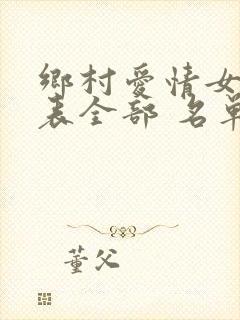 鄉村愛情女
表全部 名單
董父